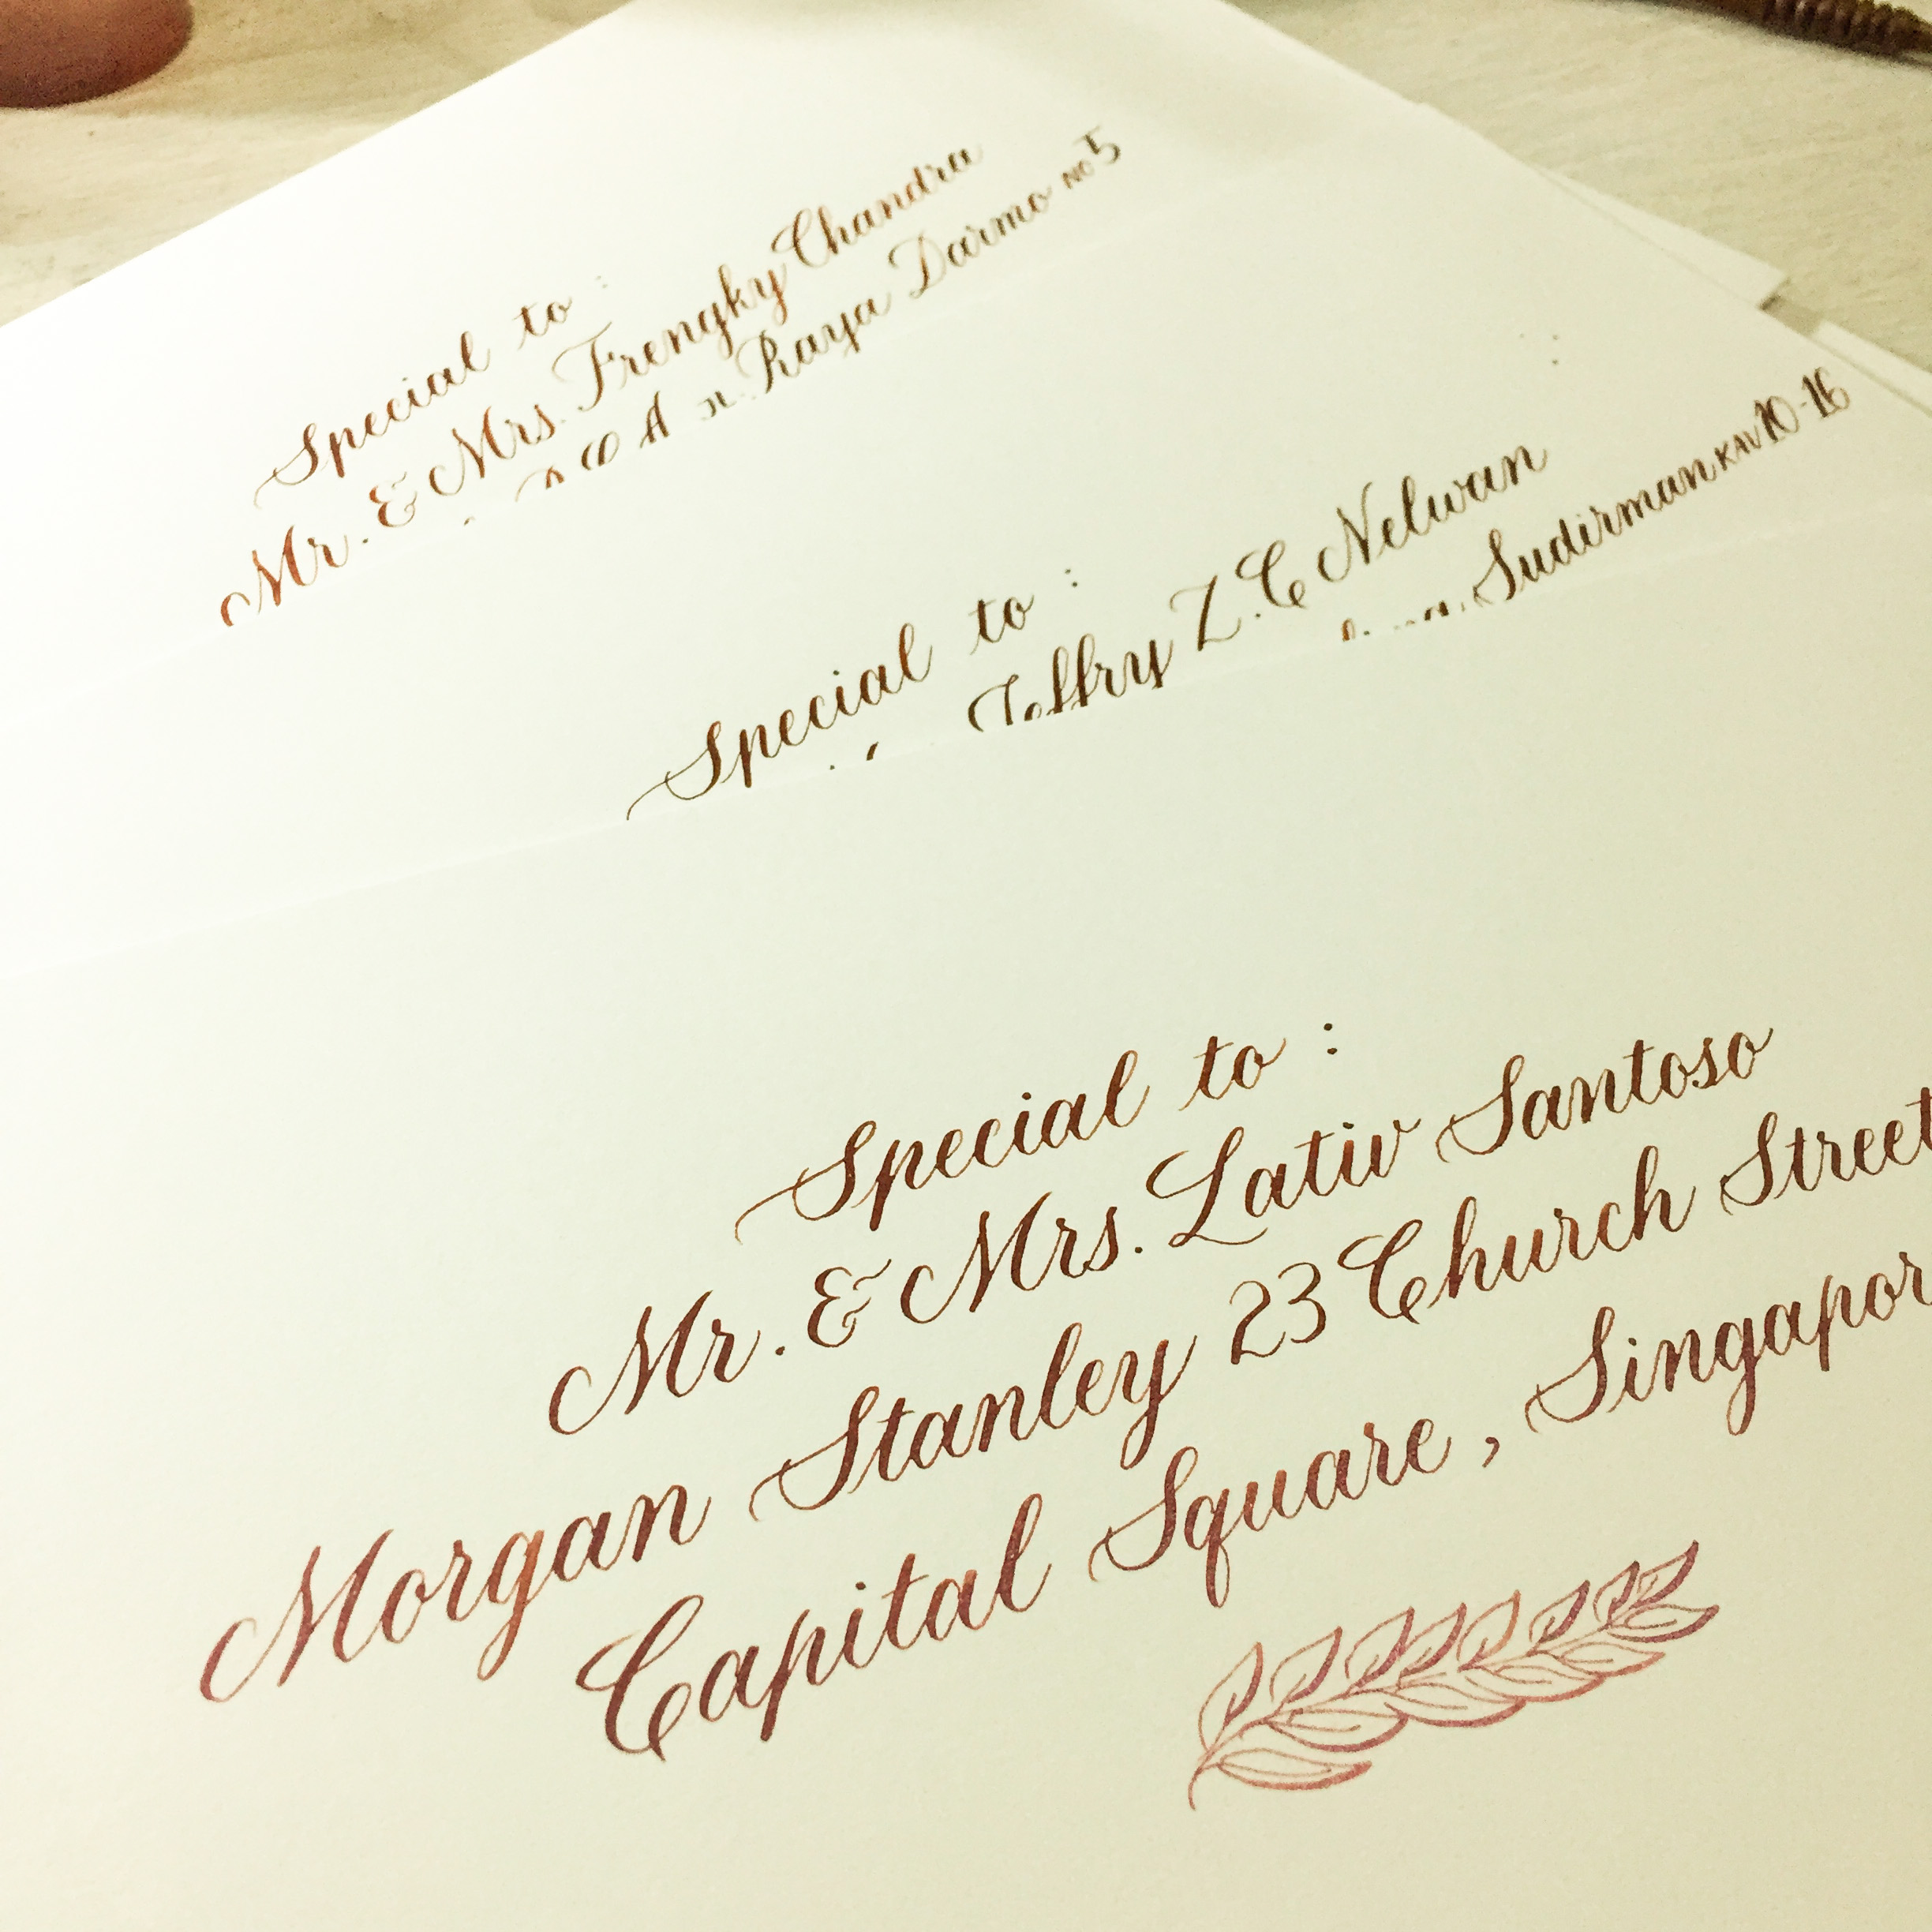 Special to :
Mr. & Mrs. Frengky Chandra
Raya Darmo No 5
Special to :
Jeffry Z. C Nelwan
Sudirman KAV 10-16
Special to :
Mr. & Mrs. Lativ Santoso
Morgan Stanley 23 Church Street
Capital Square, Singapor